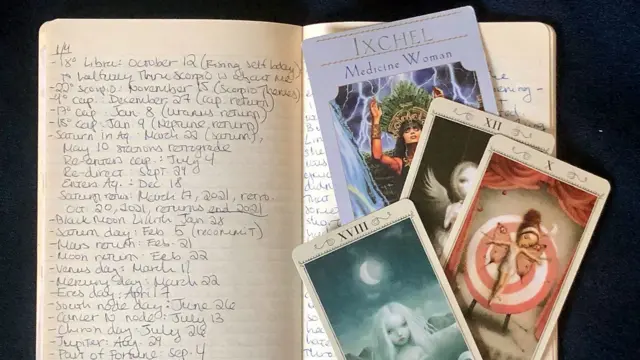 - 18° Libra: October 12 (
halfway thru Scorpio is
- 22° Scorpio: November 15 (Scorpio
- 9° cap: December 27 (cap. return)
- 17° cap: Jan 8 (Uranus return)
- 18° cap: Jan 9 (Neptune, return)
- Saturn in Aq: March 22 (return),
May 10 stations retrograde
Re-enters cap: July 4
Re-direct Sept 29
Enters Aq: Dec 18
Saturn return: March 17, 2021, retro.
Oct 20, 2021, returns end 2021
- Black Moon Lilith Jan 28
- Saturn day: Feb 5 (recommit)
- Mars return: Feb 21
- Moon return: Feb 22
- Venus day: March 11
- Mercury day: March 22
- Eres day: April 17
- South node day: June 26
- Cancer N node: July 13
- Chiron day: July 28
- Jupiter: Aug 29
- Part of Fortune: sep. 4
IXCHEL
Medicine Woman
XII
X
XVIII